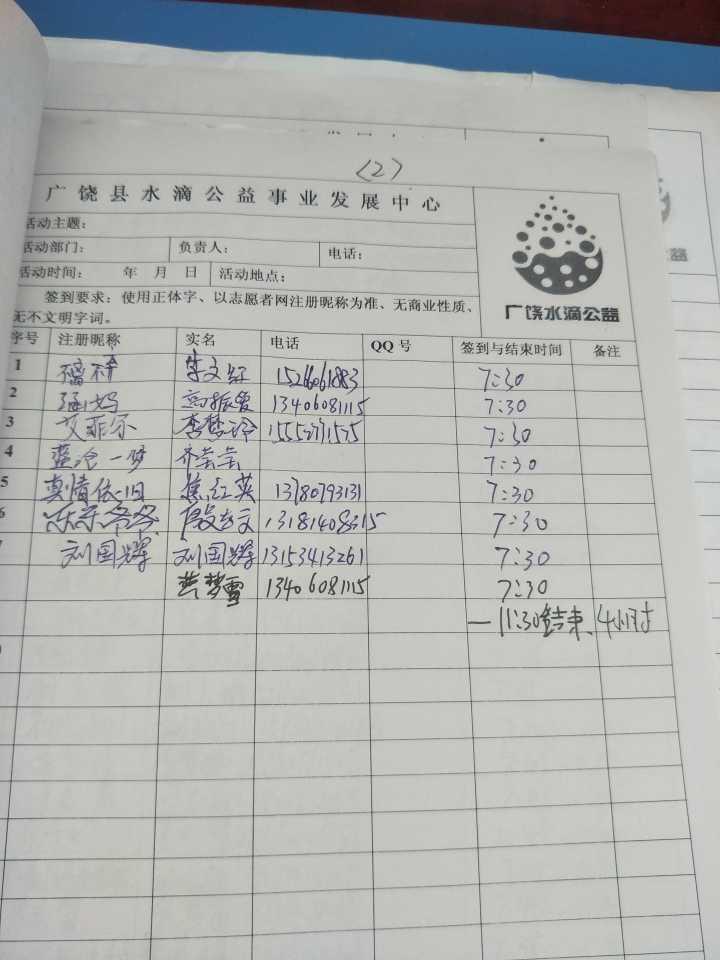 <2>
广饶县水滴公益事业发展中心
活动主题：
活动部门： 负责人： 电话：
活动时间： 年 月 日 活动地点：
签到要求：使用正体字、以志愿者网注册昵称为准、无商业性质、
无不文明字词。
广饶水滴公益
序号 注册昵称 实名 电话 QQ号 签到与结束时间 备注
1 李文红 7:30
2 涵妈 13406081115 7:30
3 艾菲尔 李梦玲 7:30
4 一梦 齐芸芸 7:30
5 真情依旧 焦红英 13780793131 7:30
6 乐乐爷爷 13181408315 7:30
刘国辉 刘国辉 13153413261 7:30
燕梦雪 13406081115 7:30
一11:30结束、4小时